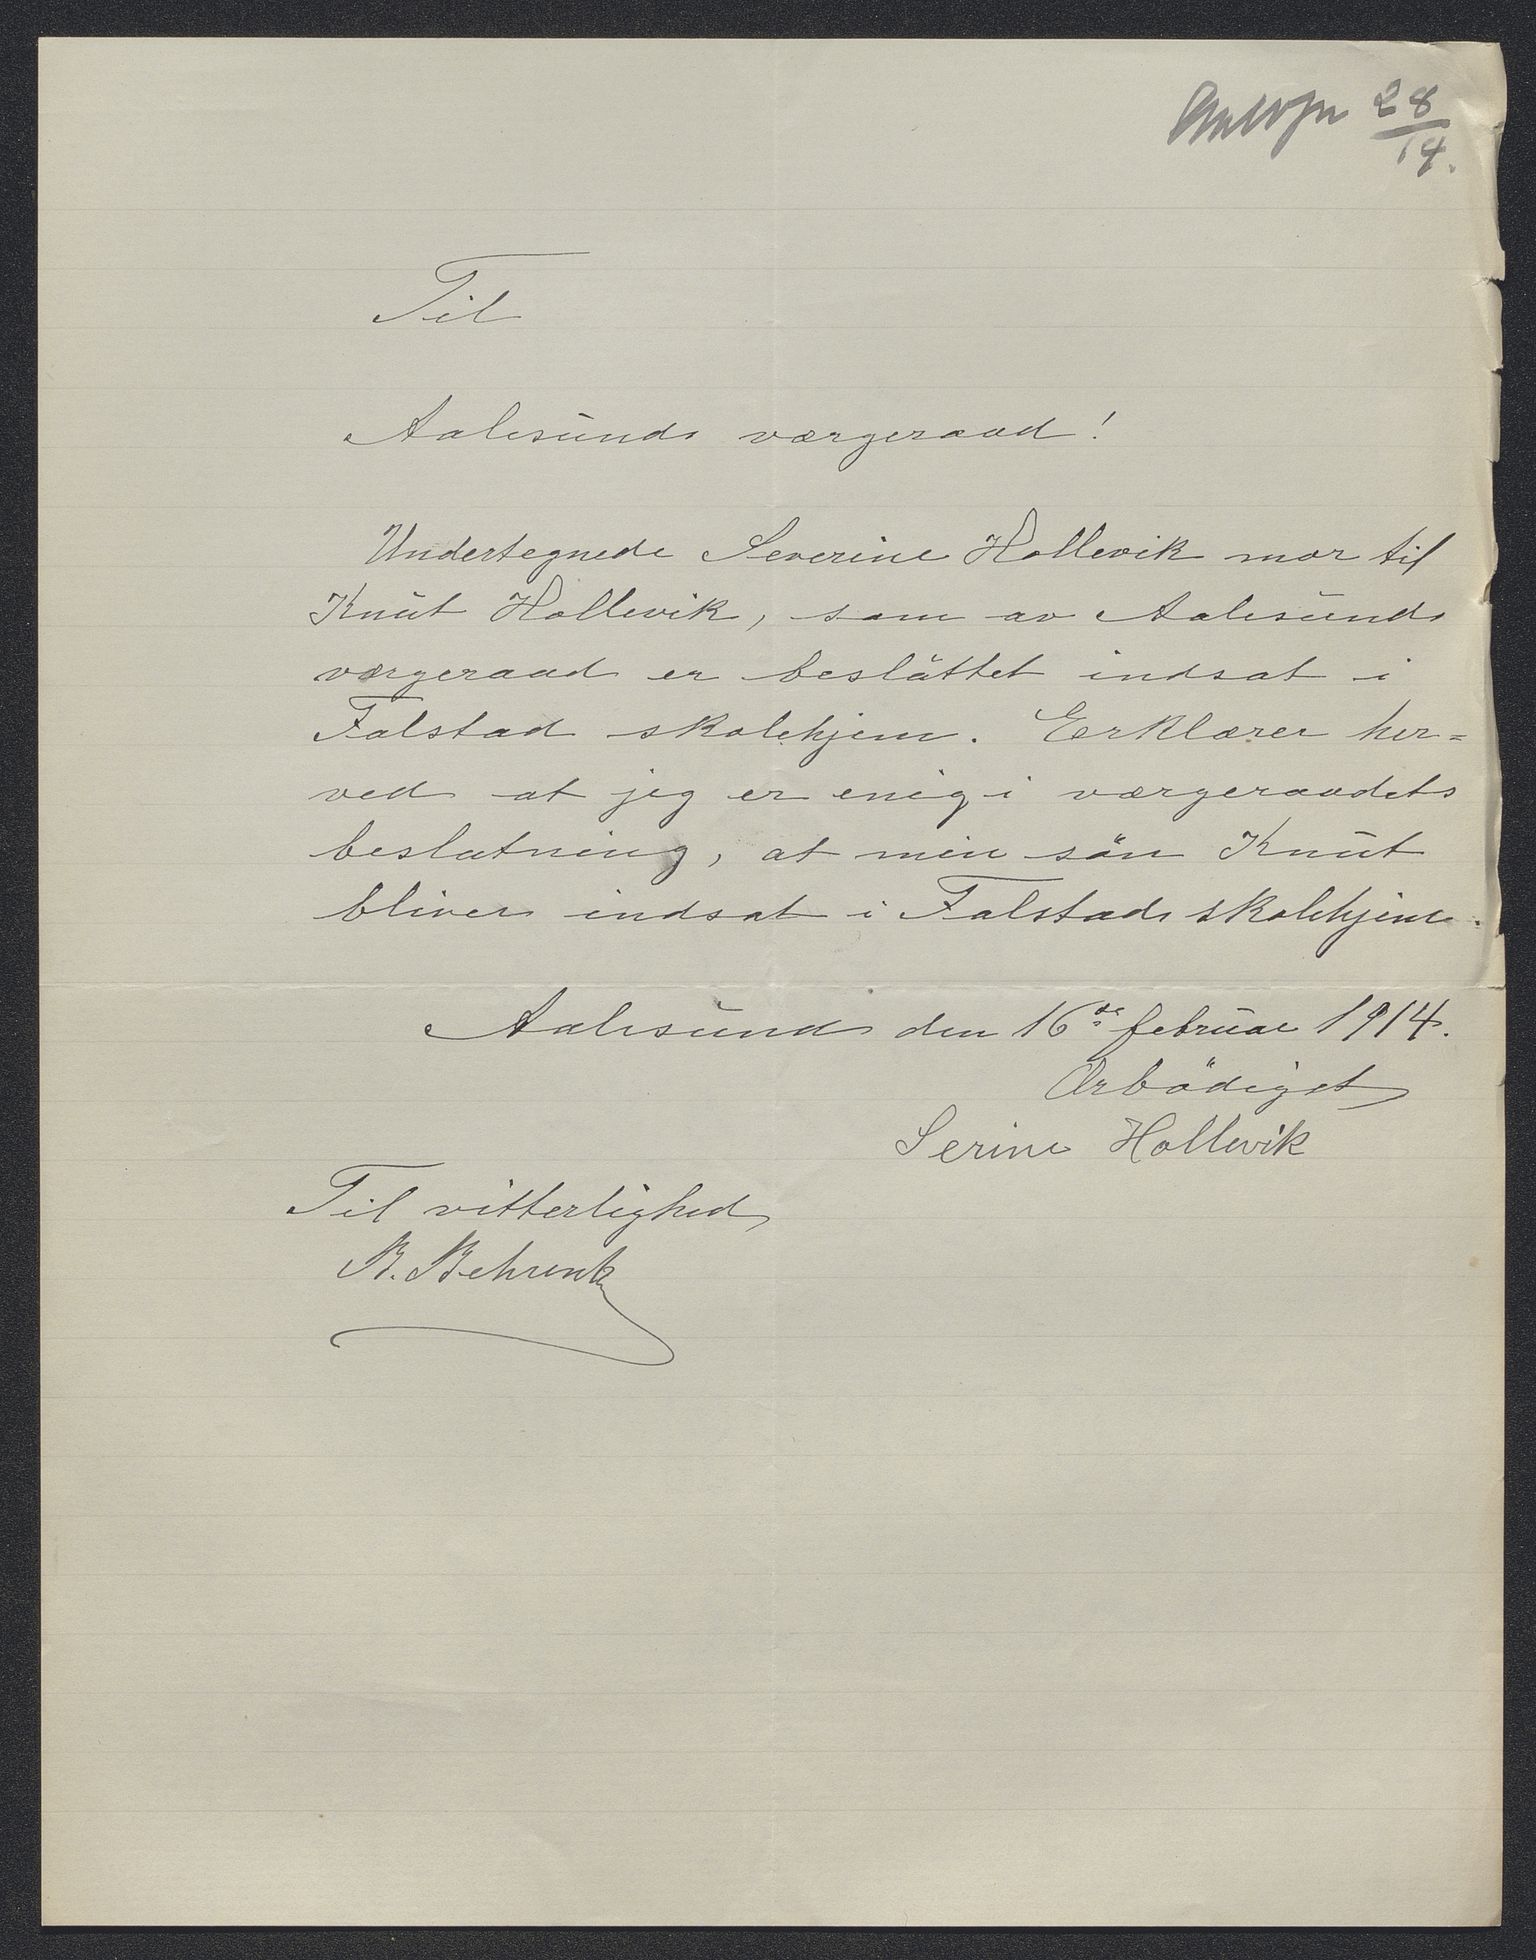 28/14.
Til
Aalesunds værgeraad!
Undertegnede Severine Hollevik mor til
Knut Hollevik, som av Aalesunds
værgeraad er besluttet indsat i
Falstad skolehjem. Eerklærer her=
ved at jeg er enig i værgeraadets
beslutning, at min sön Knut
bliver indsat i Falstads skolehjem.
Aalesund den 16de februar 1914.
Ærbödigst
Serine Hollevik
Til vitterlighed
B. Behrentz